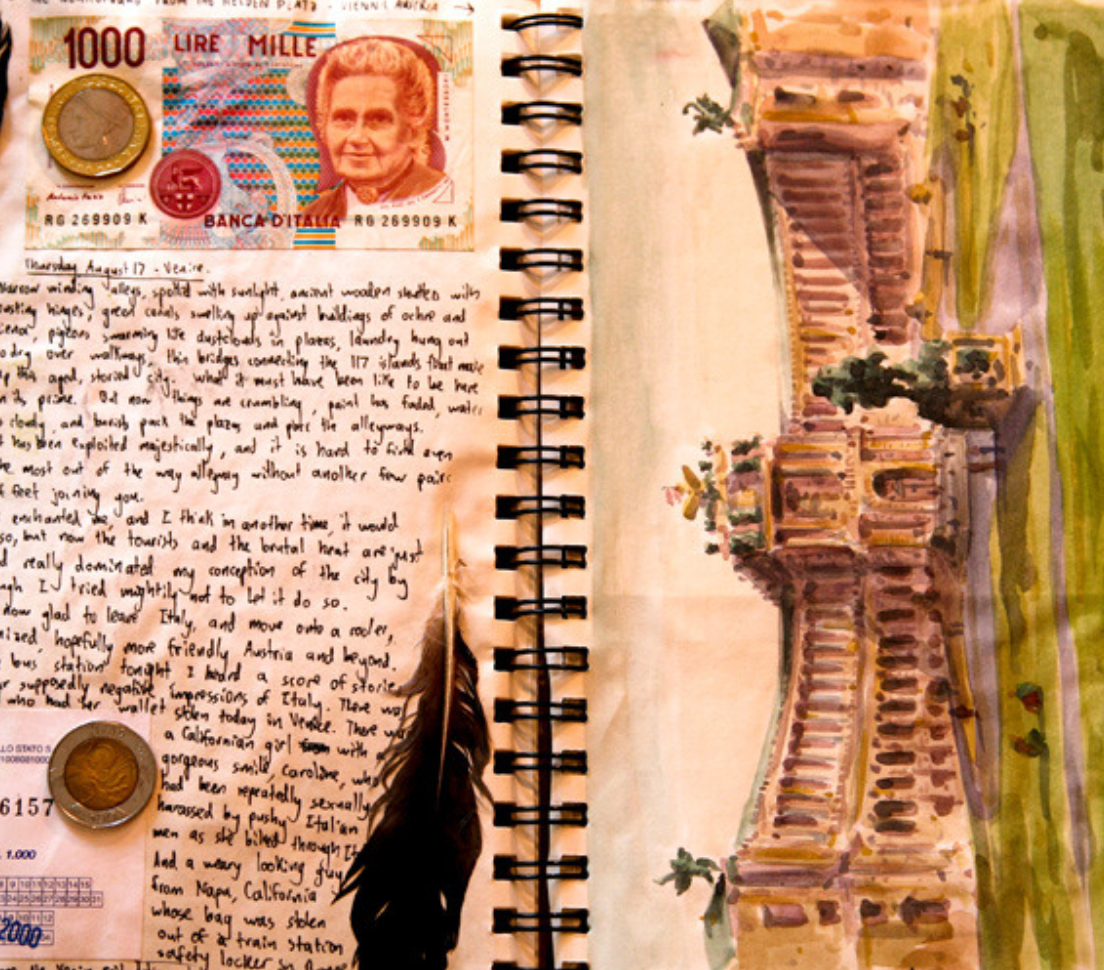 THE BACKGROUND FROM THE HELDEN PLATZ - VIENNA AUSTRIA →
1000 LIRE MILLE
RG 269909 K
BANCA D'ITALIA RG 269909 K
Thursday August 17 - Venice.
Narrow winding alleys, spotted with sunlight, ancient wooden shutters with
rusting hinges, green canals swelling up against buildings of ochre and
sienna, pigeons swarming like dustclouds in plazas, laundry hung out
to dry over walkways, thin bridges connecting the 117 islands that make
up this aged, storied city. What it must have been like to be here
in its prime. But now things are crumbling, paint has faded, water
cloudy, and tourists pack the plazas and the alleyways.
It has been exploited majestically, and it is hard to find even
the most out of the way alleyway without another few pairs
of feet joining you.
enchanted me, and I think in another time, it would
so, but now the tourists and the brutal heat are just
really dominated my conception of the city by
though I tried mightily not to let it do so.
now glad to leave Italy, and move onto a cooler,
hopefully more friendly Austria and beyond.
bus station tonight I heard a score of stories
supposedly negative impressions of Italy. There was
who had her wallet stolen today in Venice. There was
a Californian girl with a
gorgeous smile, Caroline, who
had been repeatedly sexually
harassed by pushy Italian
men as she biked through It
And a weary looking guy
from Napa, California
whose bag was stolen
out of a train station
safety locker in
LLO STATO S
6157
. 1.000
9 10 11 12 13 14 15
23 24 25 26 27 28 29 30 31
8 9 10 11 12
2000